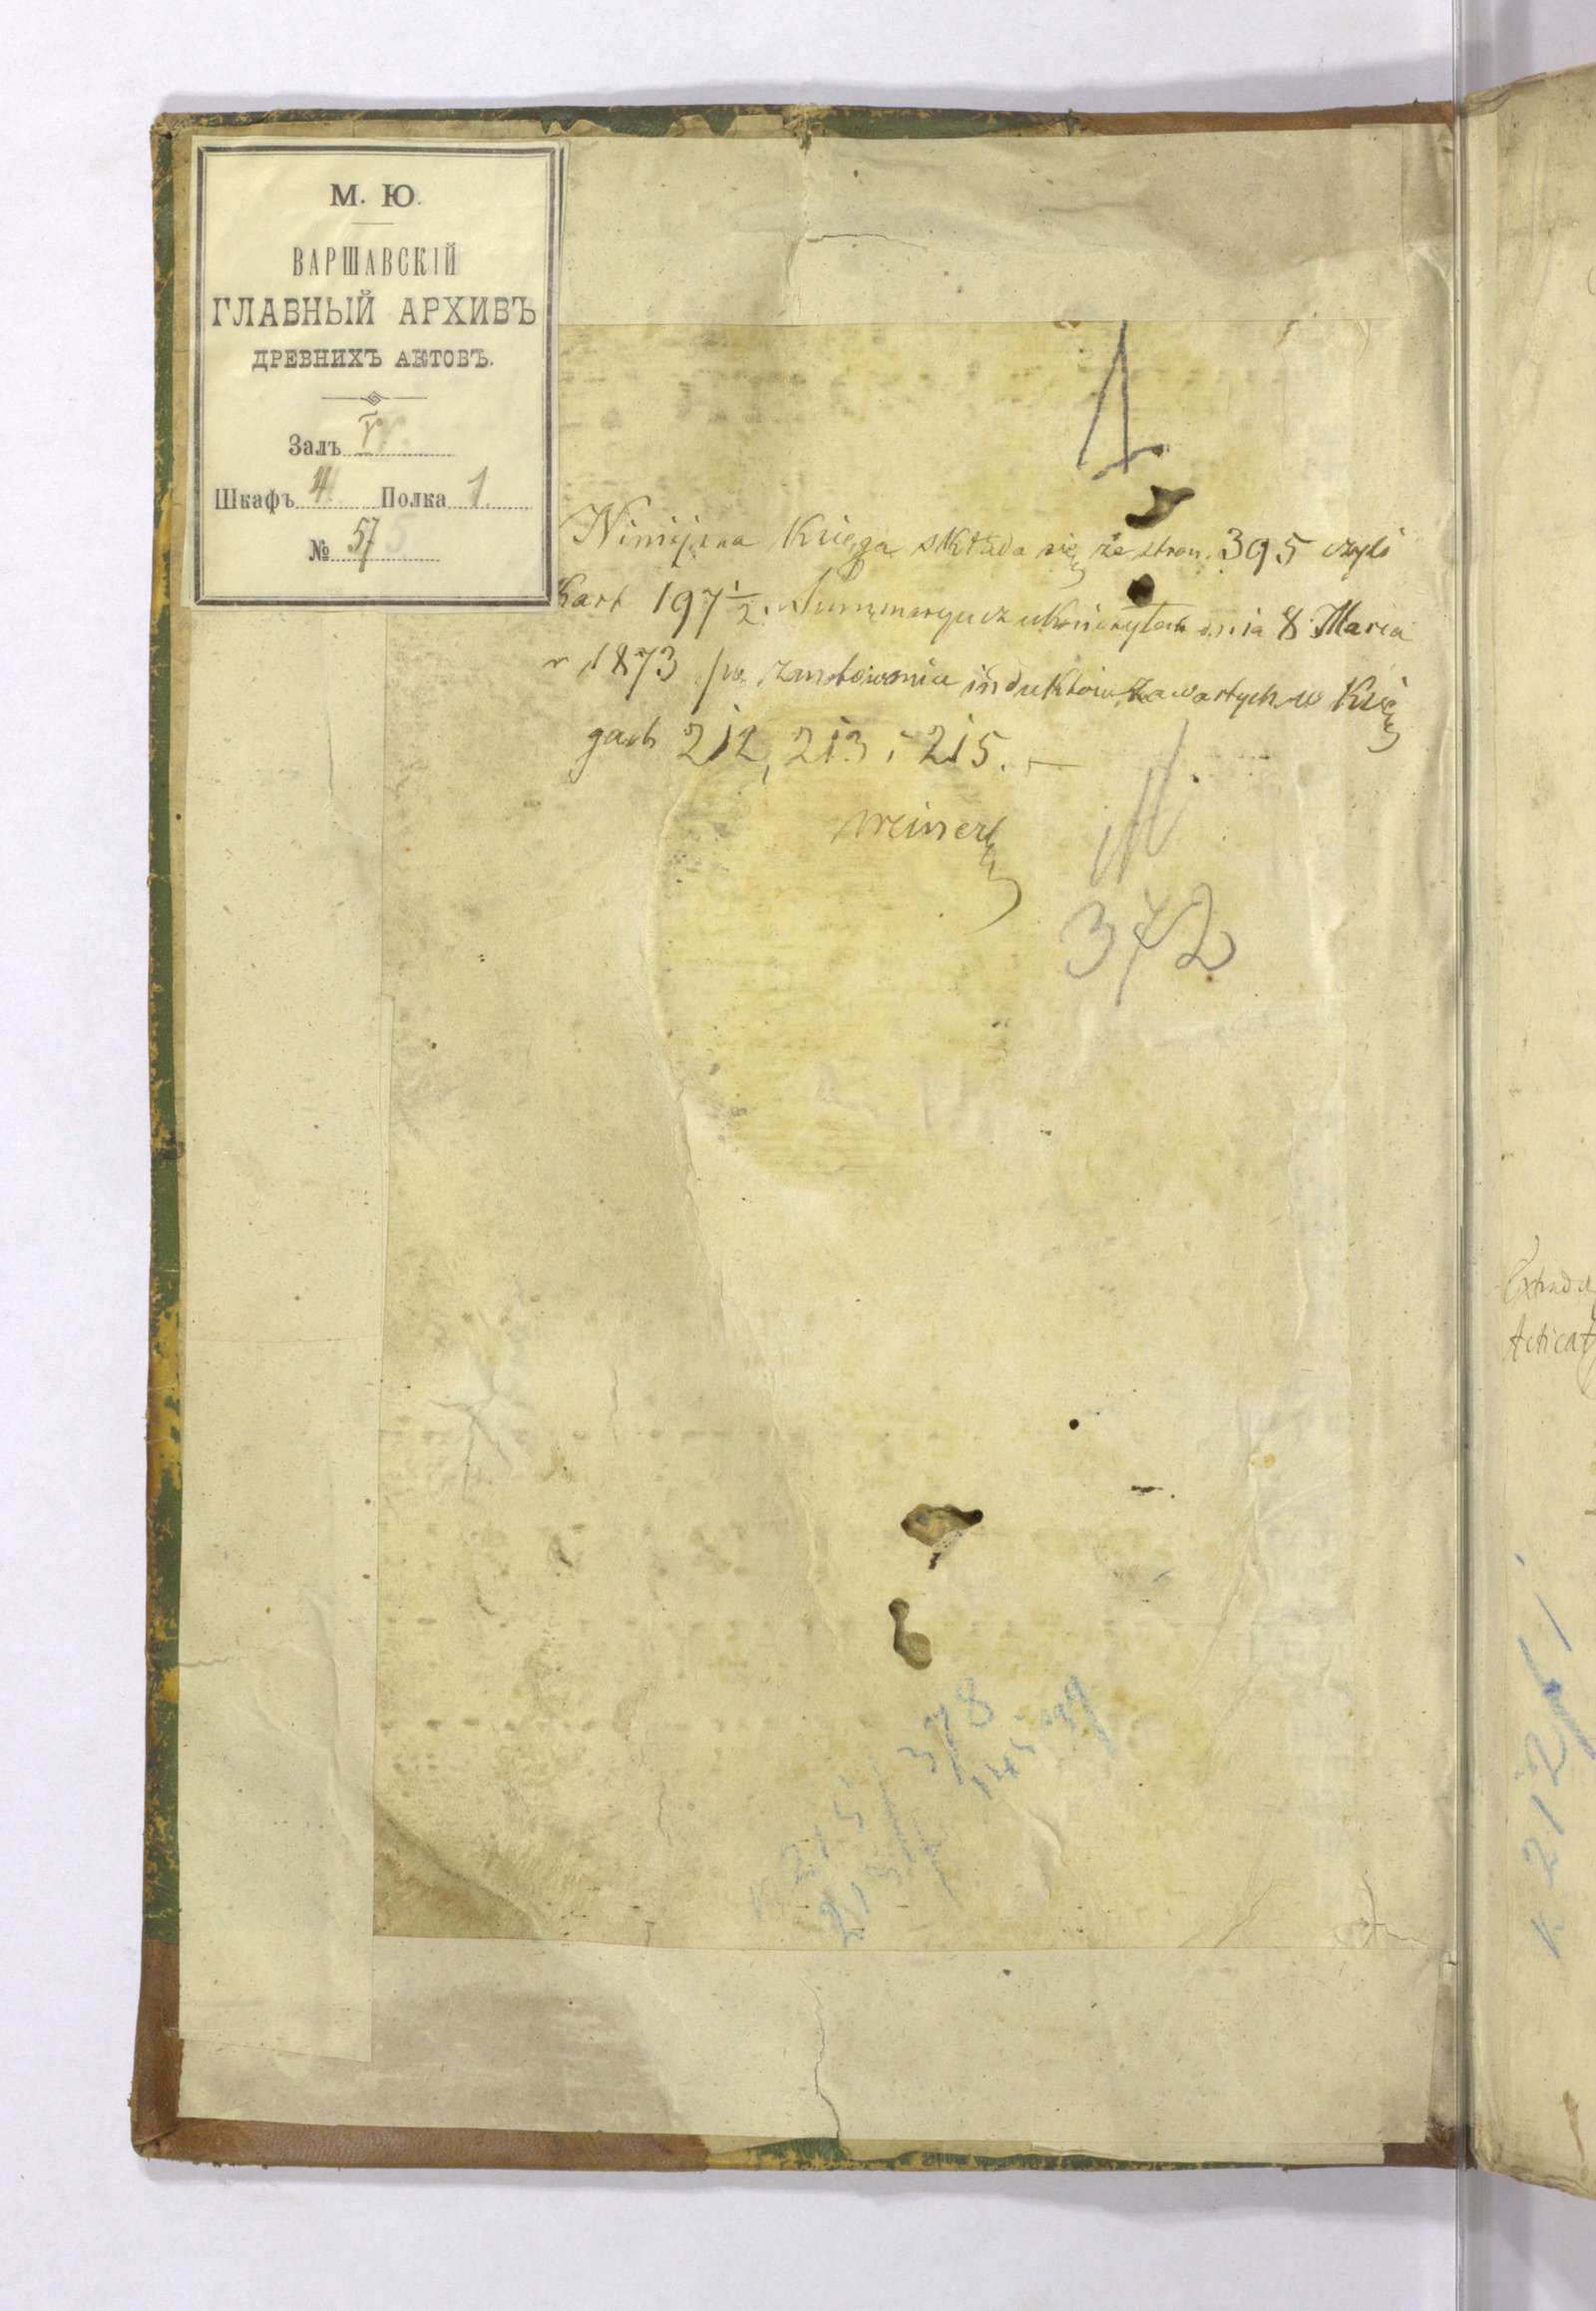 М. Ю.
ВАРШАВСКІЙ
ГЛАВНЫЙ АРХИВЪ
ДРЕВНИХЪ АКТОВЪ.
Залъ
Шкафъ 4 Полка 1.
№ 57
1
Niniejsza Księga składa się ze stron 395 czyli
Kart 197 1/2. Summaryusz ukończyłem dnia 8 Marca
r 1873 po zanotowaniu induktów zawartych w Księ
gach 212, 213 i 215. —
372
378
215
Extrada
Acticat
212